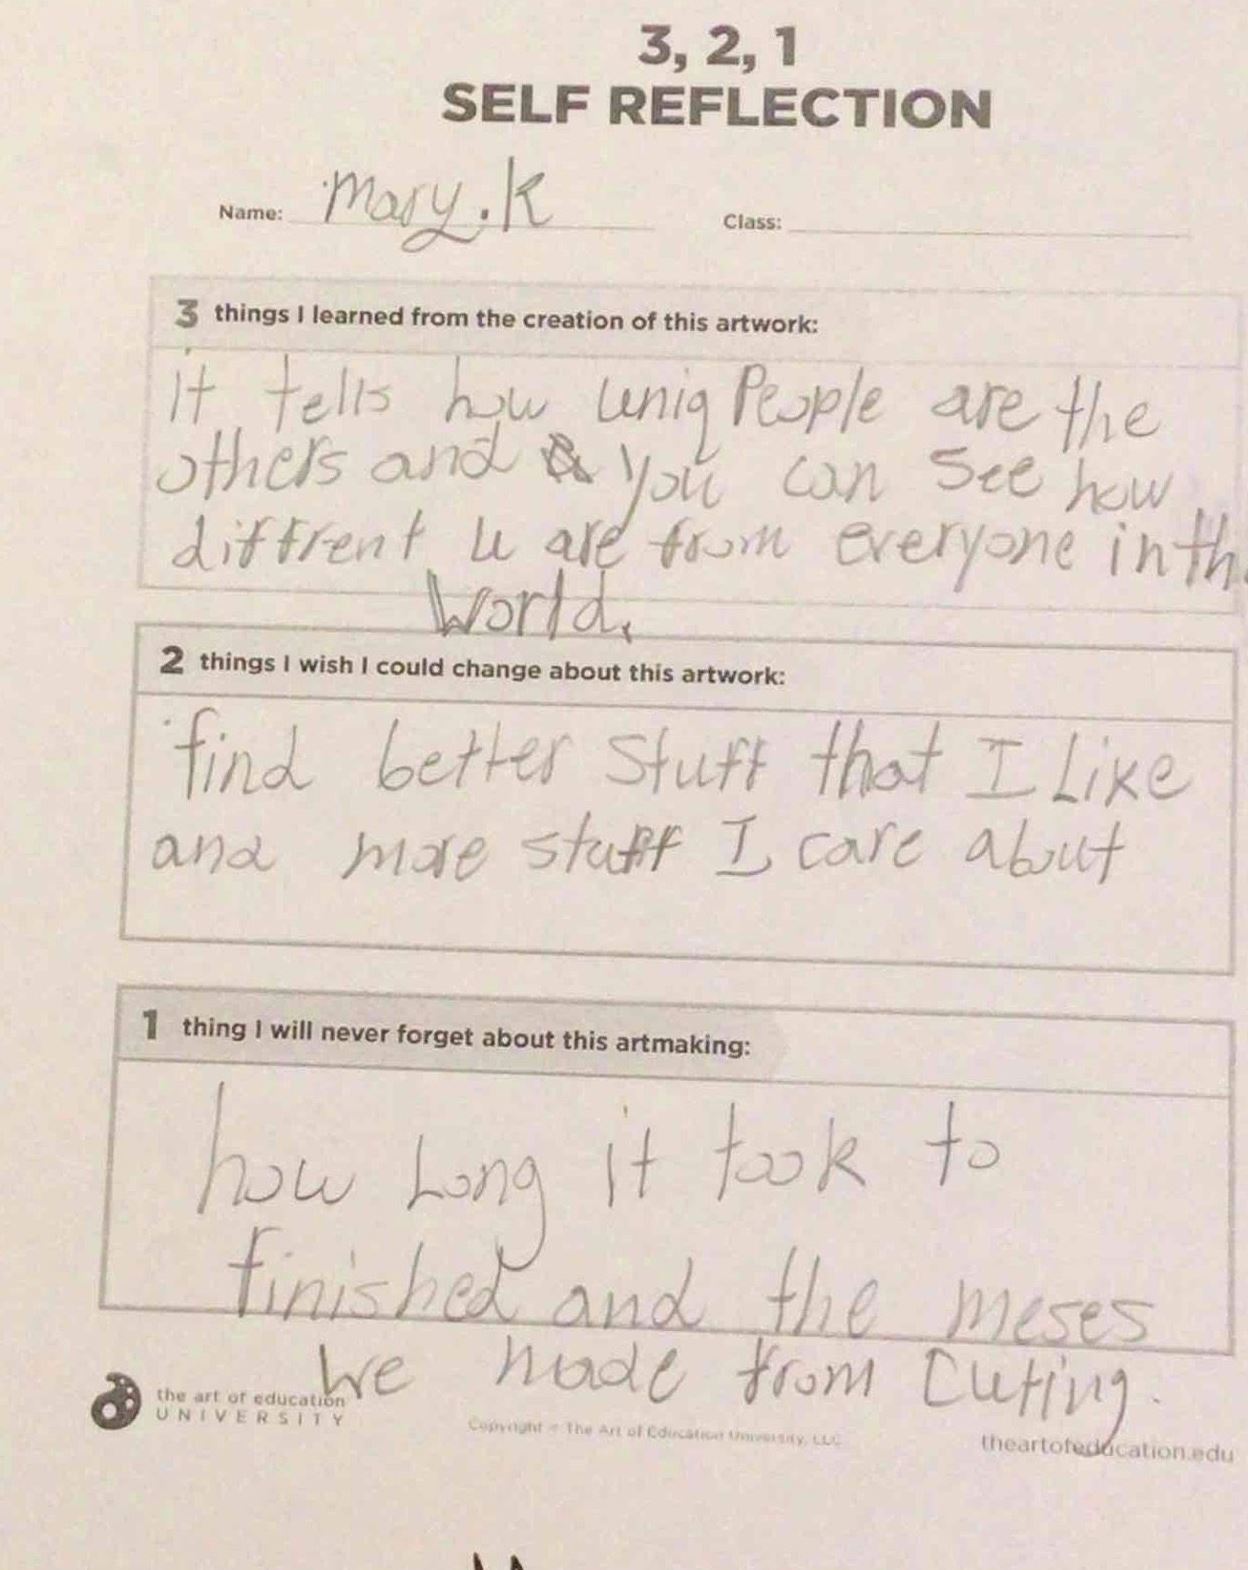 3, 2, 1
SELF REFLECTION
Name: Mary.K Class:
3 things I learned from the creation of this artwork:
it tells how uniq People are the
others and you can see how
diffrent u are from everyone in th
World.
2 things I wish I could change about this artwork:
find better stuff that I Like
and more stuff I care about
1 thing I will never forget about this artmaking:
how Long it took to
finished and the meses
we made from Cuting.
the art of education
UNIVERSITY
Copyright © The Art of Education University, LLC
theartofeducation.edu